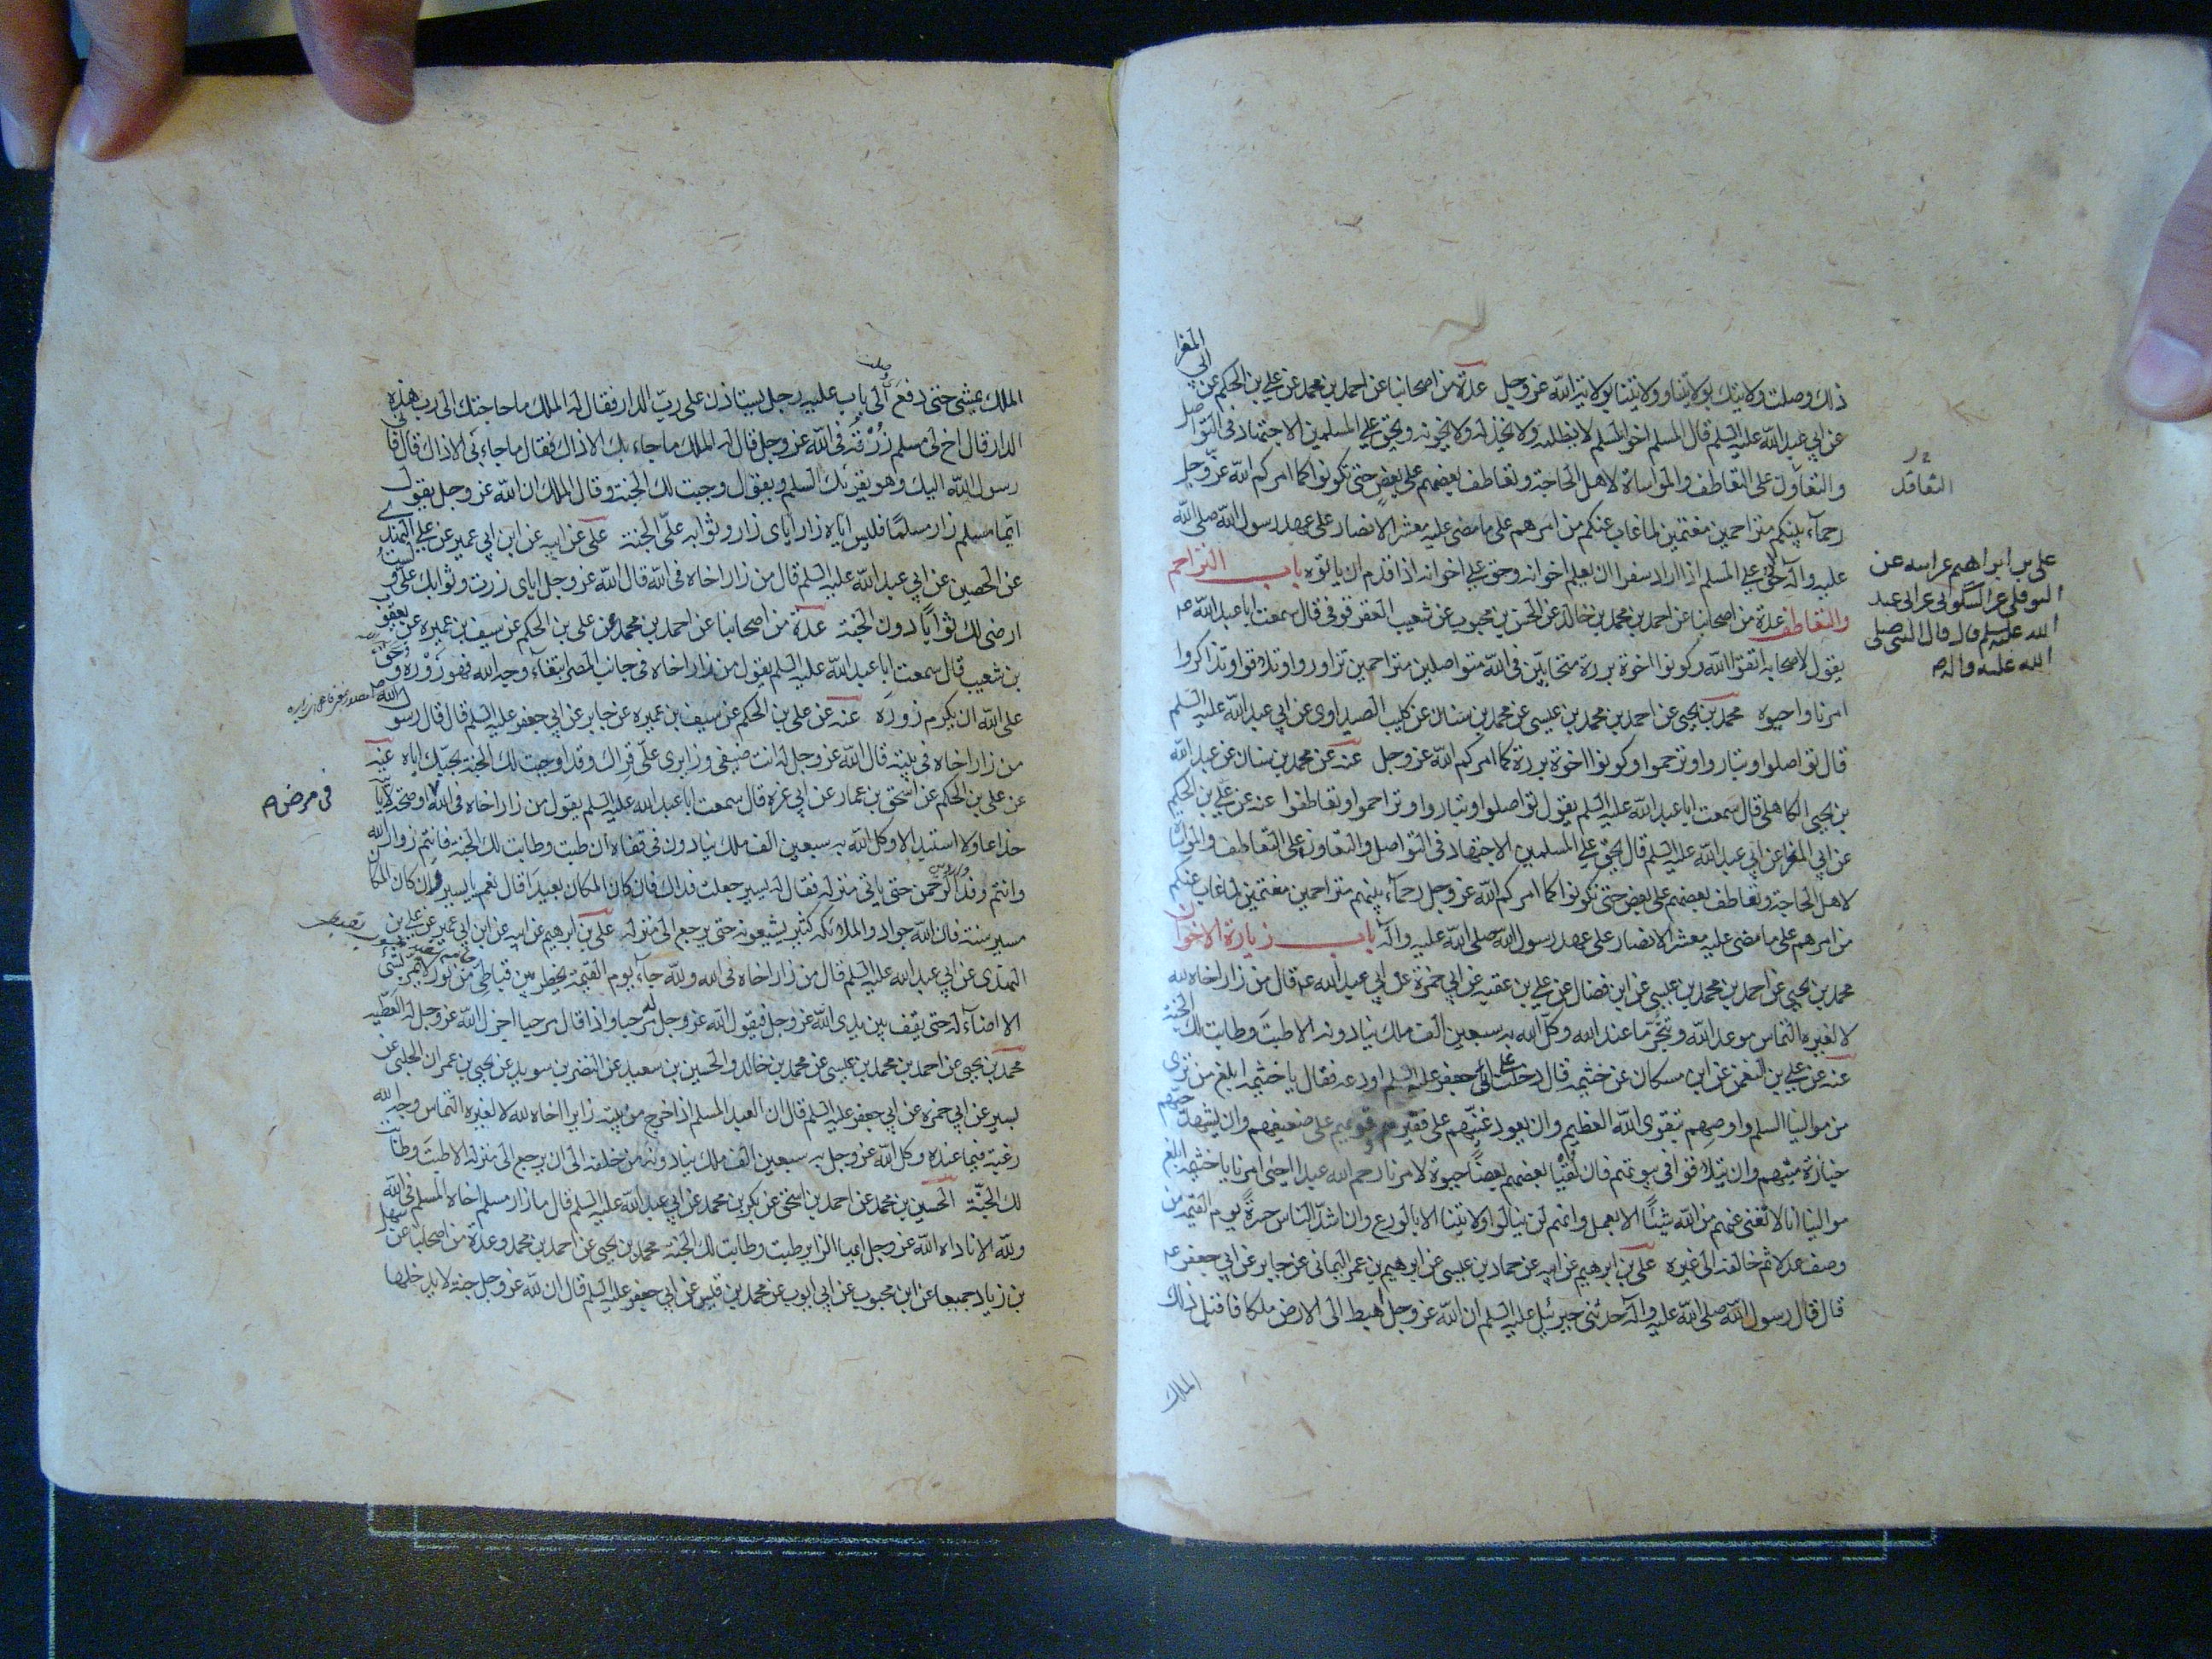 ذلك وصلت ولايتك بولايتنا وولايتنا بولاية الله عز وجل عدة من اصحابنا عن احمد بن محمد عن علي بن الحكم عن ابي المغرا
عن ابي عبد الله عليه السلم قال المسلم اخو المسلم لا يظلمه ولا يخذله ولا يخونه ويحق على المسلمين الاجتهاد في التواصل
والتعاون على التعاطف والمواساة لاهل الحاجة وتعاطف بعضهم على بعض حتى تكونوا كما امركم الله عز وجل
التعاقد
رحماء بينكم متراحمين مغتمين لما غاب عنكم من امرهم على ما مضى عليه معشر الانصار على عهد رسول الله صلى الله
عليه وآله حق على المسلم اذا اراد سفرا ان يعلم اخوانه وحق على اخوانه اذا قدم ان ياتوه باب التراحم
علي بن ابراهيم عن ابيه عن
النوفلي عن السكوني عن ابي عبد
الله عليه السلم قال قال النبي صلى
الله عليه واله
والتعاطف عدة من اصحابنا عن احمد بن محمد بن خالد عن الحسن بن محبوب عن شعيب العقرقوفي قال سمعت ابا عبد الله
يقول لاصحابه اتقوا الله وكونوا اخوة بررة متحابين في الله متواصلين متراحمين تزاوروا وتلاقوا وتذاكروا
امرنا واحيوه محمد بن يحيى عن احمد بن محمد بن عيسى عن محمد بن سنان عن كليب الصيداوي عن ابي عبد الله عليه السلم
قال تواصلوا وتباروا وتراحموا وكونوا اخوة بررة كما امركم الله عز وجل عنه عن محمد بن سنان عن عبد الله
بن يحيى الكاهلي قال سمعت ابا عبد الله عليه السلم يقول تواصلوا وتباروا وتراحموا وتعاطفوا عنه عن علي بن الحكم
عن ابي المغرا عن ابي عبد الله عليه السلم قال يحق على المسلمين الاجتهاد في التواصل والتعاون على التعاطف والمواساة
لاهل الحاجة وتعاطف بعضهم على بعض حتى تكونوا كما امركم الله عز وجل رحماء بينهم متراحمين مغتمين لما غاب عنكم
من امرهم على ما مضى عليه معشر الانصار على عهد رسول الله صلى الله عليه وآله باب زيارة الاخوان
محمد بن يحيى عن احمد بن محمد بن عيسى عن ابن فضال عن علي بن عقبه عن ابي حمزة عن ابي عبد الله قال من زار اخاه لله
لا لغيره التماس موعد الله وتنجز ما عند الله وكل الله به سبعين الف ملك ينادونه الا طبت وطابت لك الجنة
عنه عن علي بن النعمن عن ابن مسكان عن خثيمه قال دخلت على ابي جعفر عليه السلم اودعه فقال يا خثيمه ابلغ من ترى
من موالينا السلم واوصهم بتقوى الله العظيم وان يعود غنيهم على فقيرهم وقويهم على ضعيفهم وان يشهد حيهم
جنازة ميتهم وان يتلاقوا في بيوتهم فان لقيا بعضهم بعضا حيوة لامرنا رحم الله عبدا احيى امرنا يا خثيمه ابلغ
موالينا انا لا نغني عنهم من الله شيئا الا بعمل وانهم لن ينالوا ولايتنا الا بالورع وان اشد الناس حسرة يوم القيمه من
وصف عدلا ثم خالفه الى غيره علي بن ابرهيم عن ابيه عن حماد بن عيسى عن ابرهيم بن عمر اليماني عن جابر عن ابي جعفر
قال قال رسول الله صلى الله عليه وآله حدثني جبرئيل عليه السلم ان الله عز وجل اهبط الى الارض ملكا فاقبل ذلك
الملك
الملك يمشي حتى دفع الى باب عليه رجل يستاذن على رب الدار فقال له الملك ما حاجتك الى رب هذه
الدار قال اخ لي مسلم زرته في الله عز وجل قال له الملك ما جاء بك الا ذاك فقال ما جاء بي الا ذاك قال فاني
رسول الله اليك وهو يقرئك السلم ويقول وجبت لك الجنة وقال الملك ان الله عز وجل يقول
ايما مسلم زار مسلما فليس اياه زار اياي زار وثوابه علي الجنة علي عن ابيه عن ابن ابي عمير عن علي النهدي
عن الحصين عن ابي عبد الله عليه السلم قال من زار اخاه في الله قال الله عز وجل اياي زرت وثوابك علي ولست
ارضى لك ثوابا دون الجنة عدة من اصحابنا عن احمد بن محمد عن علي بن الحكم عن سيف بن عميره عن يعقوب
بن شعيب قال سمعت ابا عبد الله عليه السلم يقول من زار اخاه في جانب المصر ابتغاء وجه الله فهو زوره وحق
على الله ان يكرم زوره عنه عن علي بن الحكم عن سيف بن عميره عن جابر عن ابي جعفر عليه السلم قال قال رسول الله
من زار اخاه في بيته قال الله عز وجل له انت ضيفي وزايري علي قراك وقد اوجبت لك الجنة بحبك اياه عنه
عن علي بن الحكم عن اسحق بن عمار عن ابي غره قال سمعت ابا عبد الله عليه السلم يقول من زار اخاه في الله او صحة لا ياتيه
في مرض
خداعا ولا استبدالا وكل الله به سبعين الف ملك ينادون في قفاه ان طبت وطابت لك الجنة فانتم زوار الله
وانتم وفد الرحمن حتى ياتي منزله فقال له يسير جعلت فداك فان كان المكان بعيدا قال نعم يا يسير وان كان المكان
مسير سنة فان الله جواد والملائكه كثير يشيعونه حتى يرجع الى منزله علي بن ابرهيم عن ابيه عن ابن ابي عمير عن علي بن
النهدي عن ابي عبد الله عليه السلم قال من زار اخاه في الله ولله جاء يوم القيمة يخطر بين قباطي من نور لا يمر بشيء
الا اضاء له حتى يقف بين يدي الله عز وجل فيقول الله عز وجل له مرحبا واذا قال مرحبا اجزل الله عز وجل له العطيه
محمد بن يحيى عن احمد بن محمد بن عيسى عن محمد بن خالد والحسين بن سعيد عن النضر بن سويد عن يحيى بن عمران الحلبي عن
بسير عن ابي حمزه عن ابي جعفر عليه السلم قال ان العبد المسلم اذا خرج من بيته زايرا اخاه لله لا لغيره التماس وجه الله
رغبة فيما عنده وكل الله عز وجل به سبعين الف ملك ينادونه من خلفه الى ان يرجع الى منزله الا طبت وطابت
لك الجنة الحسين بن محمد عن احمد بن اسحق عن بكر بن محمد عن ابي عبد الله عليه السلم قال ما زار مسلم اخاه المسلم في الله
ولله الا ناداه الله عز وجل ايها الزاير طبت وطابت لك الجنة محمد بن يحيى عن احمد بن محمد وعدة من اصحابنا عن سهل
بن زياد جميعا عن ابن محبوب عن ابي ايوب عن محمد بن قيس عن ابي جعفر عليه السلم قال ان لله عز وجل جنة لا يدخلها